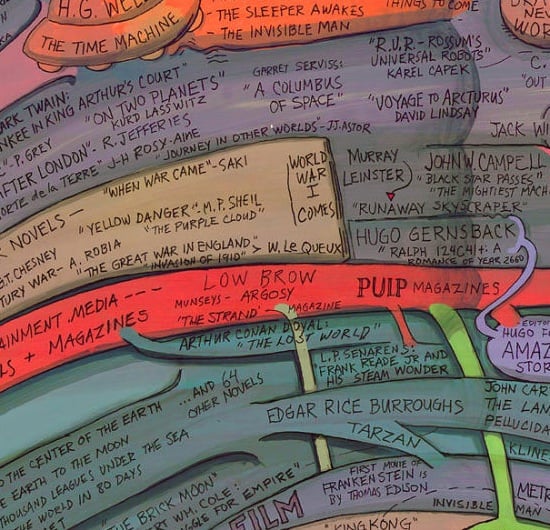 H.G. WEL
THE TIME MACHINE
- THE SLEEPER AWAKES
- THE INVISIBLE MAN
THINGS TO COME
NEW
WOR
ARK TWAIN:
NKEE IN KING ARTHUR'S COURT"
"ON TWO PLANETS"
KURD LASSWITZ
GARRET SERVISS:
"A COLUMBUS
OF SPACE"
"R.U.R. - ROSSUM'S
UNIVERSAL ROBOTS"
KAREL CAPEK
"VOYAGE TO ARCTURUS"
DAVID LINDSAY
C.
"OUT
JACK WI
P. GREY
AFTER LONDON" - R. JEFFERIES
ORTE de la TERRE" J-H ROSY-AINE
"JOURNEY IN OTHER WORLDS" - JJ. ASTOR
"WHEN WAR CAME" - SAKI
WORLD
WAR
I
COMES
MURRAY
LEINSTER
"RUNAWAY SKYSCRAPER"
JOHN W. CAMPELL
"BLACK STAR PASSES"
"THE MIGHTIEST MACH
NOVELS -
"YELLOW DANGER" - M.P. SHEIL
"THE PURPLE CLOUD"
B.T. CHESNEY
TURY WAR - A. ROBIA
"THE GREAT WAR IN ENGLAND"
"INVASION OF 1910"
> W. LE QUEUX
HUGO GERNSBACK
"RALPH 124C41+: A
ROMANCE OF YEAR 2660
AINMENT MEDIA ---
LS + MAGAZINES
LOW BROW
MUNSEYS - ARGOSY
'THE STRAND' MAGAZINE
PULP MAGAZINES
"EDITO
HUGO
AMAZ
STOR
ARTHUR CONAN DOYAL:
"THE LOST WORLD"
L.P. SENARENS:
"FRANK READE JR AND
HIS STEAM WONDER
...AND 64
OTHER NOVELS
EDGAR RICE BURROUGHS
TARZAN
JOHN CAR
THE LAN
PELLUCIDA
KLINE
O THE CENTER OF THE EARTH
E EARTH TO THE MOON
THOUSAND LEAGUES UNDER THE SEA
HE WORLD IN 80 DAYS
"THE BRICK MOON"
RT WM. COLE:
GLE FOR EMPIRE"
FILM
FIRST MOVIE OF
FRANKENSTEIN IS
BY THOMAS EDISON
INVISIBLE MAN
METR
"KING KONG"